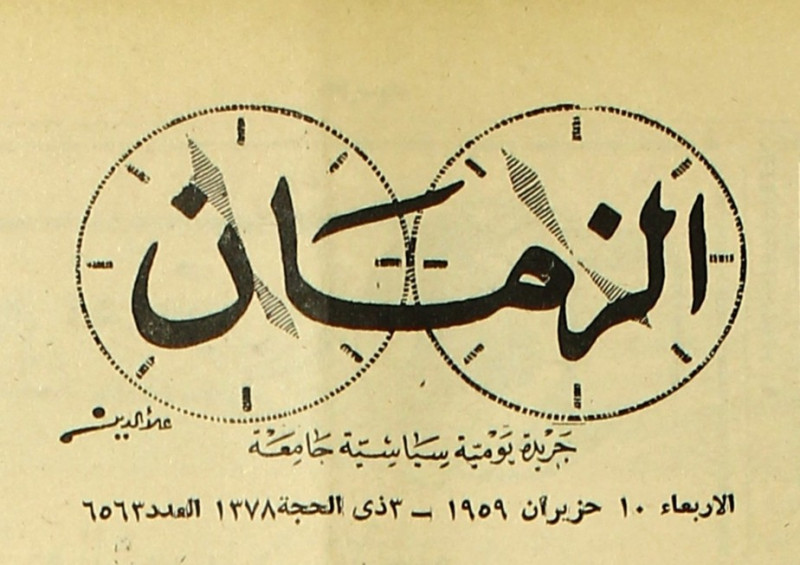 الزمان
علاءالدين
جَريدة يَوميّة سِيَاسِيّة جَامِعَة
الاربعاء ١٠ حزيران ١٩٥٩ — ٣ ذى الحجة ١٣٧٨ العدد ٦٥٦٣